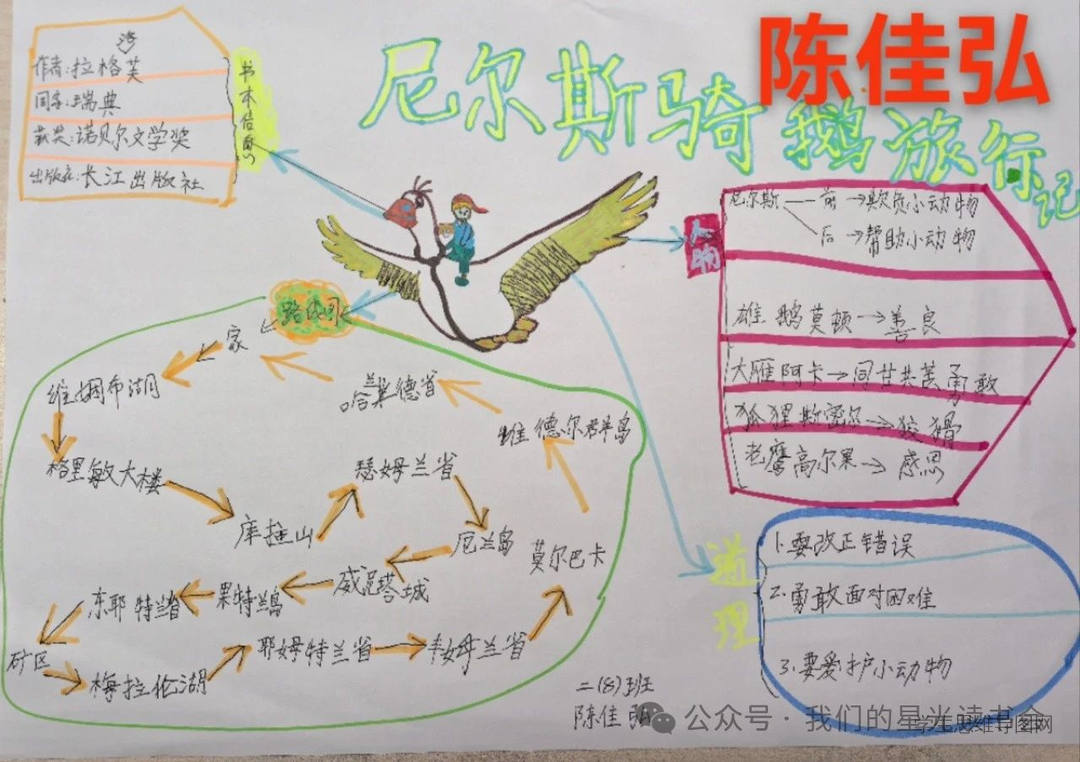 陈佳弘
尼尔斯骑鹅旅行记
书本信息
作者:拉格芙
国家:瑞典
获奖:诺贝尔文学奖
出版社:长江出版社
人物
尼尔斯——前→欺负小动物
后→帮助小动物
雄鹅莫顿→善良
大雁阿卡→同甘共苦 勇敢
狐狸斯密尔→狡猾
老鹰高尔果→感恩
家
维姆布湖
格里敏大楼
库拉山
瑟姆兰省
厄兰岛
威泥塔城
果特兰岛
东耶特兰省
矿区
梅拉伦湖
耶姆特兰省
韦姆兰省
莫尔巴卡
维德尔群岛
哈兰德省
道理
1.要改正错误
2.勇敢面对困难
3.要爱护小动物
二(8)班
陈佳弘
公众号·我们的星光读书会